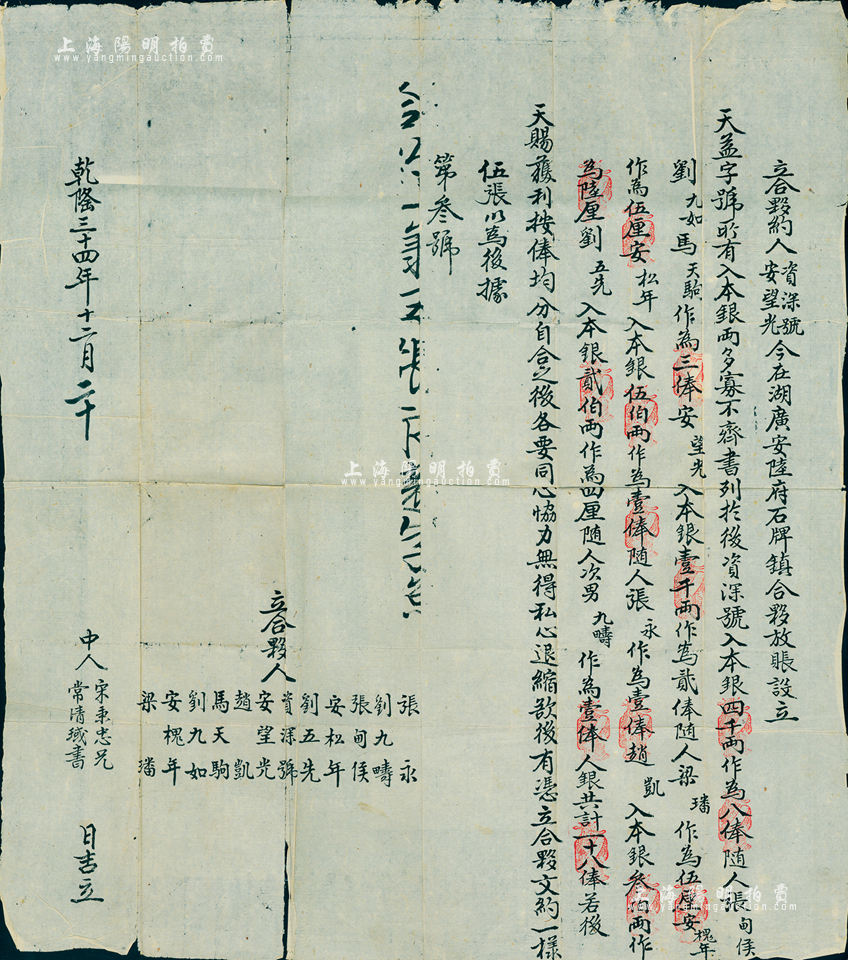 立合夥約人資深號安望光今在湖廣安陸府石牌鎮合夥放賬設立
天益字號所有入本銀兩多寡不齊書列於後資深號入本銀四千兩作為八俸随人張甸侯
劉九如馬天駒作為三俸安望光入本銀壹千兩作為貳俸随人梁璠作為伍厘安槐年
作為伍厘安松年入本銀伍伯兩作為壹俸随人張永作為壹俸趙凱入本銀叁伯兩作
為陸厘劉五先入本銀貳伯兩作為四厘随人次男九疇作為壹俸人銀共計一十八俸若後
天賜獲利按俸均分自合之後各要同心恊力無得私心退縮欲後有憑立合夥文約一樣
伍張以為後據
第叁號
立合夥人
張永
劉九疇
張甸侯
安松年
劉五先
資深號
安望光
趙凱
馬天駒
劉九如
安槐年
梁璠
乾隆三十四年十二月二十日吉立
中人宋秉忠兄
常清 書
上海陽明拍賣
www.yangmingauction.com
上海陽明拍賣
www.yangmingauction.com
上海陽明拍賣
www.yangmingauction.com